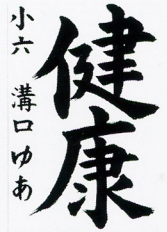 健康
小六 溝口ゆあ